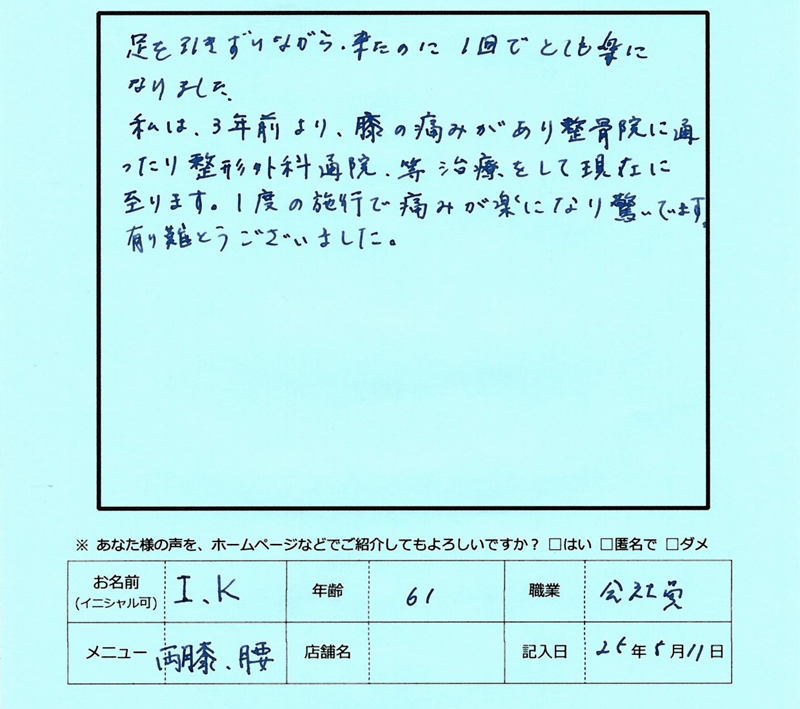 足を引きずりながら、来たのに 1回でとても楽に
なりました。
私は、3年前より、膝の痛みがあり整骨院に通
ったり整形外科通院、等治療をして現在に
至ります。1度の施行で痛みが楽になり驚いてます。
有り難とうございました。
※ あなた様の声を、ホームページなどでご紹介してもよろしいですか？ □はい □匿名で □ダメ
お名前 (イニシャル可) I、K 年齢 61 職業 会社員
メニュー 両膝、腰 店舗名 記入日 25年5月11日